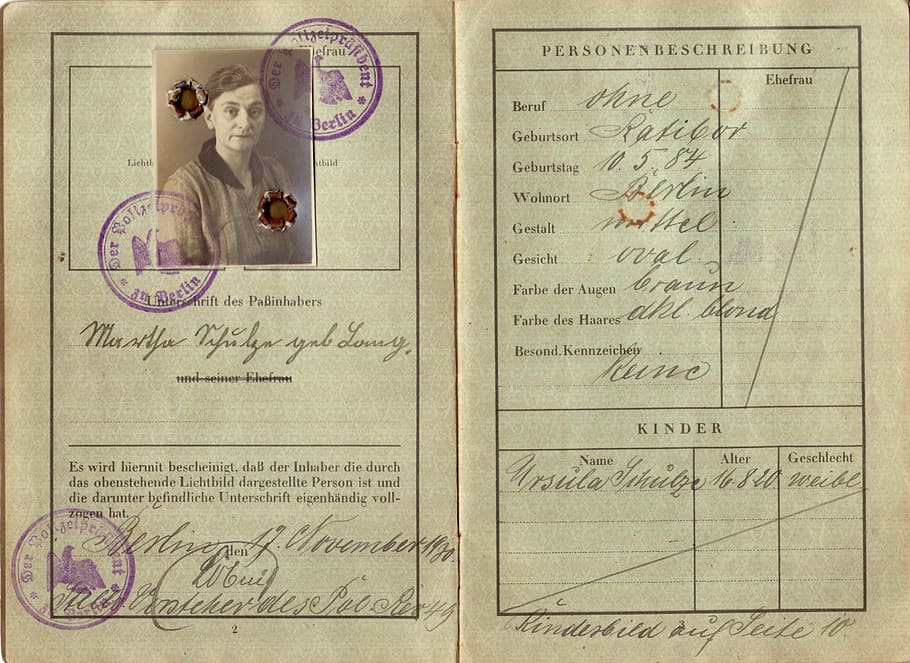 Ehefrau
Der Polizeipräsident
Berlin
Lichtb
tbild
Der Polizeipräs
zu Berlin
Unterschrift des Paßinhabers
Martha Schulze geb Lang.
und seiner Ehefrau
Es wird hiermit bescheinigt, daß der Inhaber die durch
das obenstehende Lichtbild dargestellte Person ist und
die darunter befindliche Unterschrift eigenhändig voll-
zogen hat.
Berlin, den 17. November 1930.
Der Polizeipräsident
zu Berlin
Vorsteher des Pol Rev 49
2
PERSONENBESCHREIBUNG
Ehefrau
Beruf ohne
Geburtsort Ratibor
Geburtstag 10. 5. 84
Wohnort Berlin
Gestalt mittel
Gesicht oval.
Farbe der Augen braun
Farbe des Haares dkl. blond
Besond. Kennzeichen
keine
KINDER
Name Alter Geschlecht
Ursula Schulze 16.8.20 weibl
Kinderbild auf Seite 10